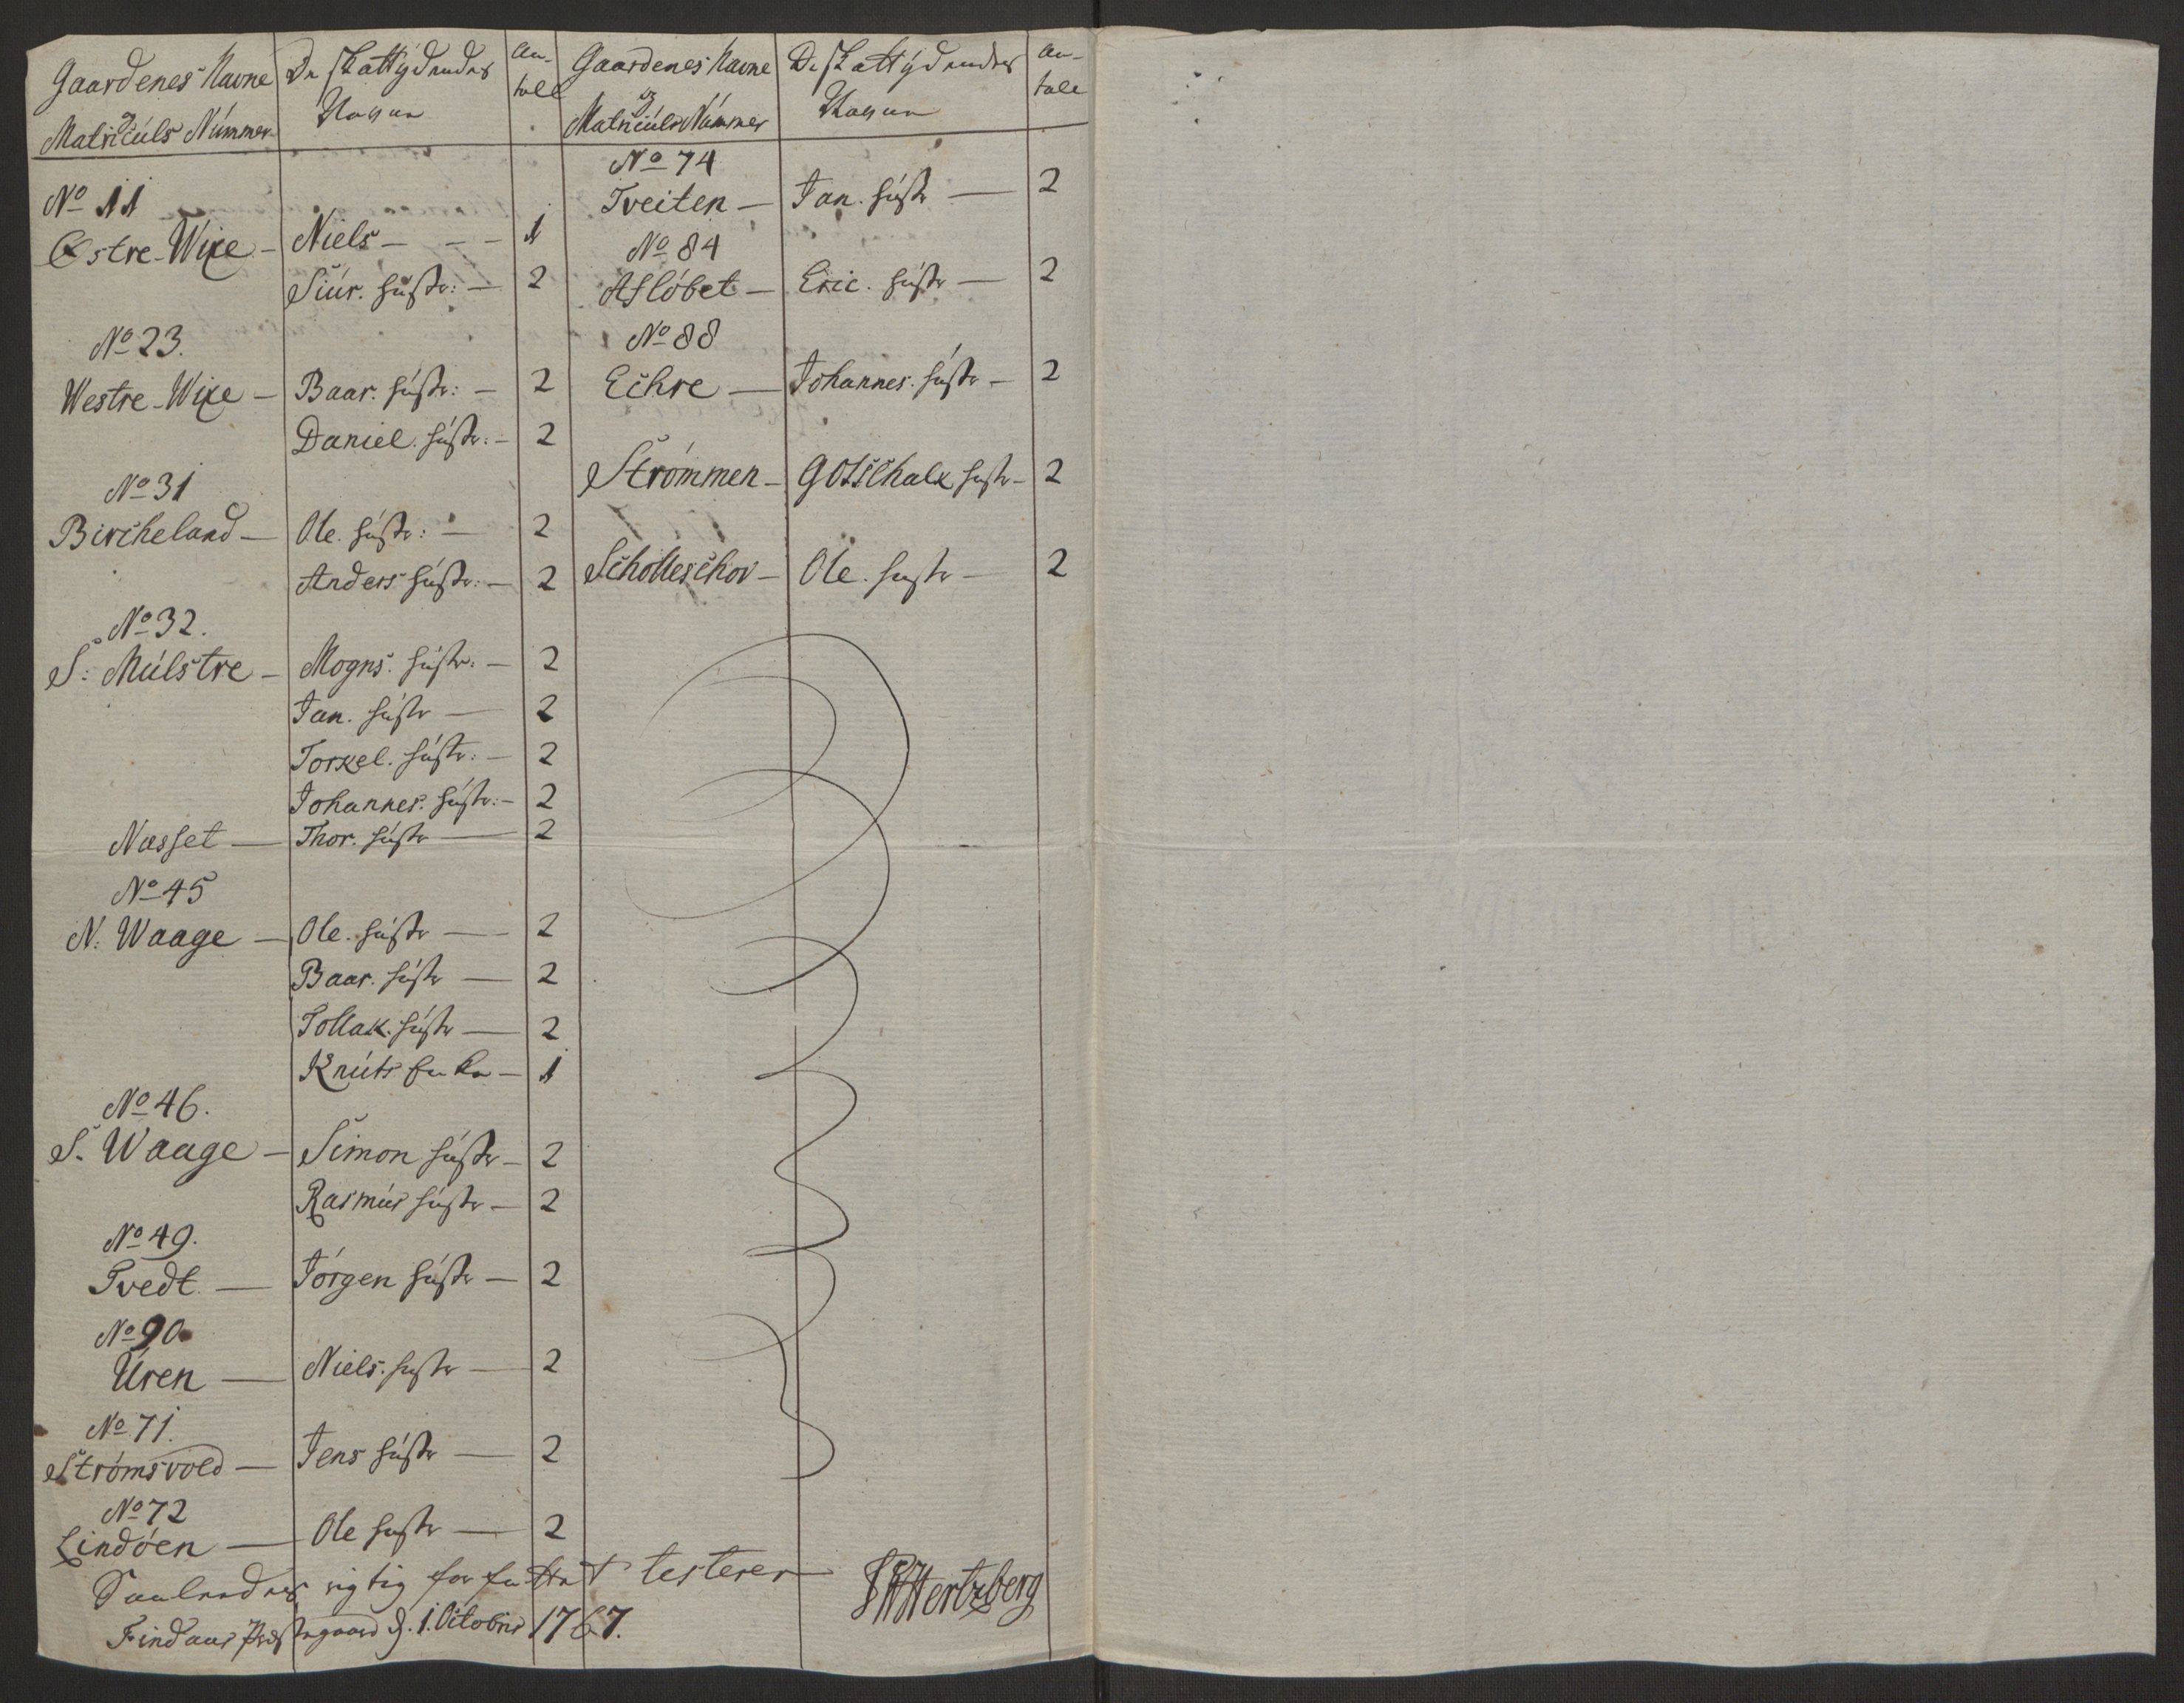 Gaardenes Navne
og
Matriculs Nummer
De skattydendes
Nafne
An-
tall
No 11
Østre-Wixe - Niels - - - 1
Siur. hustr: - 2
No 23.
Westre-Wixe - Baar. hustr: - 2
Daniel. hustr: - 2
No 31
Bircheland - Ole. hustr: - 2
Anders hustr: - 2
No 32.
S: Mulstre - Mogns. hustr: - 2
Jan. hustr - 2
Torkel. hustr: - 2
Johannes. hustr: - 2
Næsset - Thor. hustr - 2
No 45
N: Waage - Ole. hustr - 2
Baar. hustr - 2
Tollak. hustr - 2
Knuts Enke - 1
No 46.
S. Waage - Simon hustr - 2
Rasmus hustr - 2
No 49.
Tvedt - Jørgen hustr - 2
No 90.
Uren - Niels. hustr - 2
No 71.
Strømsvold - Jens hustr - 2
No 72
Lindøen - Ole hustr - 2
Gaardenes Navne
og
Matriculs Nummer
De skattydendes
Nafne
An-
tall
No 74
Tveiten - Jan. hustr - 2
No 84
Afløbet - Eric. hustr - 2
No 88
Echre - Johannes. hustr - 2
Strømmen - Gotschalk hustr - 2
Scholleschov - Ole. hustr - 2
Saaledes rigtig forfattet testerer
Findaas Præstegaard d. 1. Octobris 1767.
Hertzberg